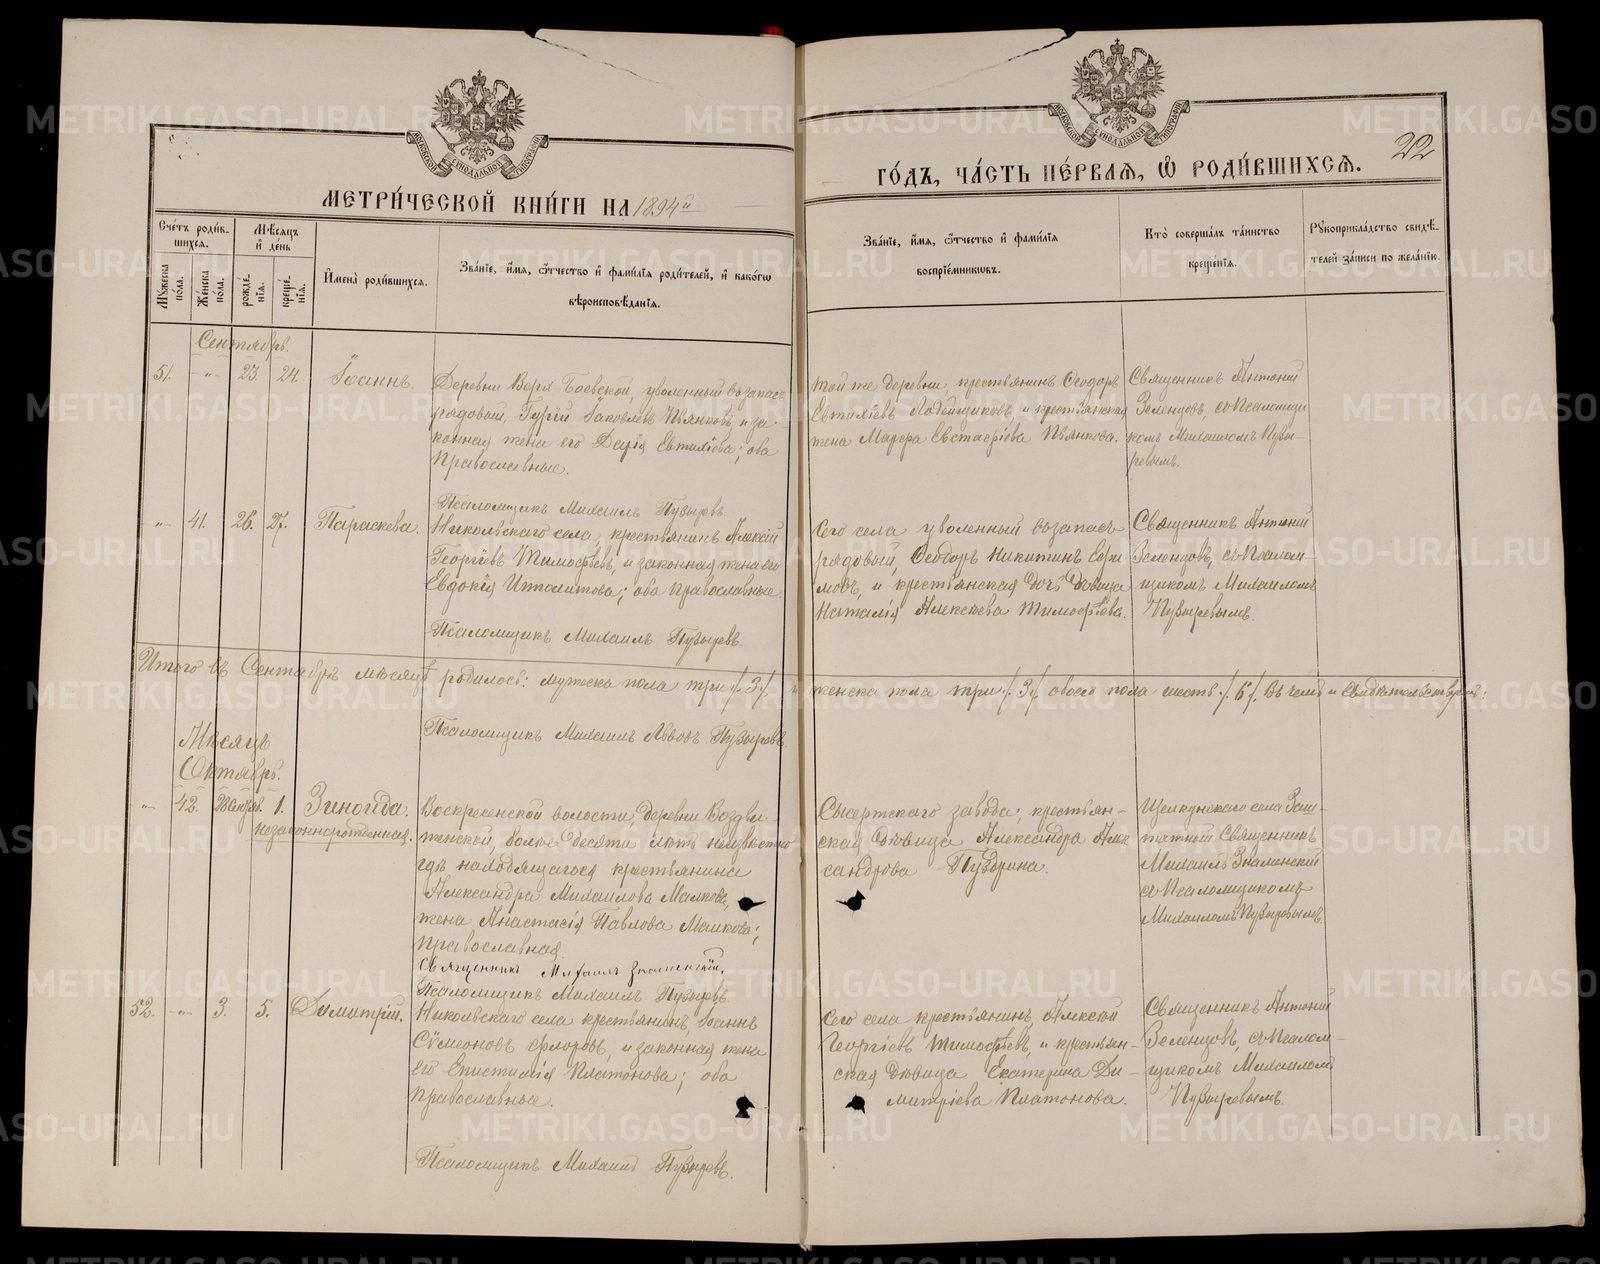 МЕТРИ́ЧЕСКОЙ КНИ́ГИ НА 1894й
ГО́ДЪ, ЧА́СТЬ ПЕ́РВАЯ, Ѡ РОДИ́ВШИХСЯ.
22
Сче́тъ роди́в-
шихся.
Му́жеска по́ла.
Же́нска по́ла.
Мѣ́сяцъ и де́нь
рожде-
нія.
креще́-
нія.
Имена̀ роди́вшихся.
Зва́ніе, и́мя, ѻ́тчество и фами́лія роди́телей, и како́гѡ
вѣроисповѣ́данія.
Зва́ніе, и́мя, ѻ́тчество и фами́лія
воспріе́мникѡвъ.
Кто̀ соверша́лъ та́инство
креще́нія.
Рꙋкоприкла́дство свидѣ́-
телей за́писи по жела́нію.
Сентябрь.
51. -"- 23. 24. Іоаннъ.
Деревни Верх Боевской, уволенный возапасъ
рядовой, Гурій Іаковлевъ Пьянковъ и за-
конная жена его Дарія Евтихіева; оба
Православные.
Псаломщикъ Михаилъ Пузыревъ.
той же деревни крестьянинъ Ѳеодоръ
Евтихіевъ и крестьянская
жена Марѳа Евстаѳіева Пьянкова.
Священникъ Антоній
Зеленцовъ, съ Псаломщи
комъ Михаиломъ Пузы-
ревымъ.
-"- 41. 26. 27. Параскева.
Никольскаго села, крестьянинъ Алексій
Георгіевъ Тимоѳѣевъ, и законная жена его
Евдокія Ипполитова; оба православные.
Псаломщикъ Михаилъ Пузыревъ.
Сего села уволенный возапасъ
рядовый, Ѳеодоръ Никитинъ
и крестьянская дочь дѣвица
Наталія Алексѣева Тимоѳѣева.
Священникъ Антоній
Зеленцовъ, съ Псалом-
щикомъ Михаиломъ
Пузыревымъ.
Итого въ Сентябрѣ мѣсяцѣ родилось: мужеска пола три /.3./. и женска пола три /.3./. обоего пола шесть /.6./. Въ чемъ и свидѣтельствуемъ:
Псаломщикъ Михаилъ Львовъ Пузыревъ.
Мѣсяцъ
Октябрь.
-"- 42. 28 Сентяб. 1. Зинаида.
незаконнорожденная.
Воскресенской волости, деревни Воздви-
женской, болѣе десяти лѣтъ неизвѣстно
гдѣ находящагося крестьянина
Александра Михаилова Малкова,
жена Анастасія Павлова Малкова;
православная.
Священникъ Михаилъ Знаменскій.
Псаломщикъ Михаилъ Пузыревъ.
Сысертскаго завода, крестьян-
ская дѣвица Александра Алек
сандрова Пузорина.
Щелкунскаго села Заш-
татный Священникъ
Михаилъ Знаменскій
съ Псаломщикомъ
Михаиломъ Пузыревымъ.
52. -"- 3. 5. Димитрій.
Никольскаго села крестьянинъ, Іоаннъ
Сѵмеоновъ Флоровъ, и законная жена
его Епистимія Платонова; оба
православные.
Псаломщикъ Михаилъ Пузыревъ.
Сего села крестьянинъ Алексій
Георгіевъ Тимоѳѣевъ, и крестьян-
ская дѣвица Екатерина Ди-
митріева Платонова.
Священникъ Антоній
Зеленцовъ, съ Псалом-
щикомъ Михаиломъ
Пузыревымъ.
METRIKI.GASO-URAL.RU